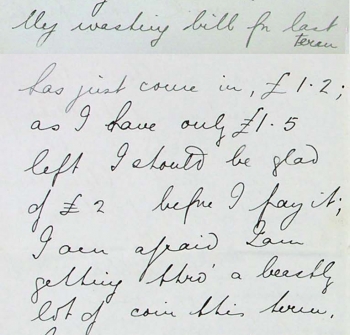 My washing bill for last
term
has just come in, £1·2;
as I have only £1·5
left I should be glad
of £2 before I pay it;
I am afraid I am
getting thro' a beastly
lot of coin this term.